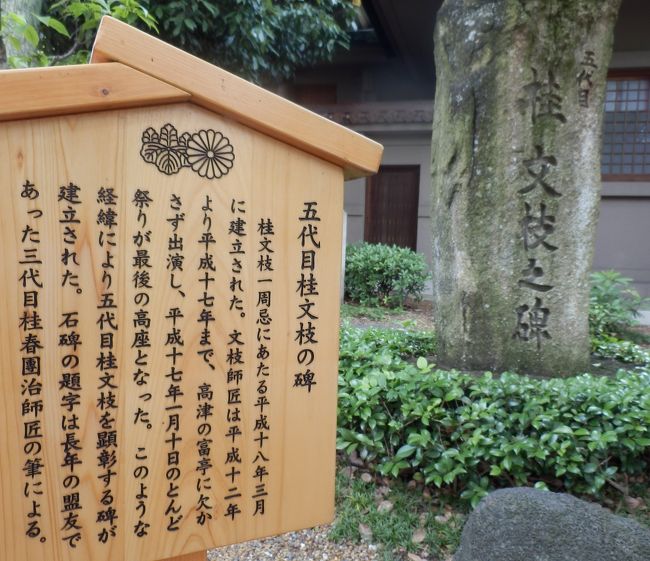 五代目桂文枝の碑
桂文枝一周忌にあたる平成十八年三月
に建立された。文枝師匠は平成十二年
より平成十七年まで、高津の富亭に欠か
さず出演し、平成十七年一月十日のとんど
祭りが最後の高座となった。このような
経緯により五代目桂文枝を顕彰する碑が
建立された。石碑の題字は長年の盟友で
あった三代目桂春團治師匠の筆による。
五代目
桂文枝之碑